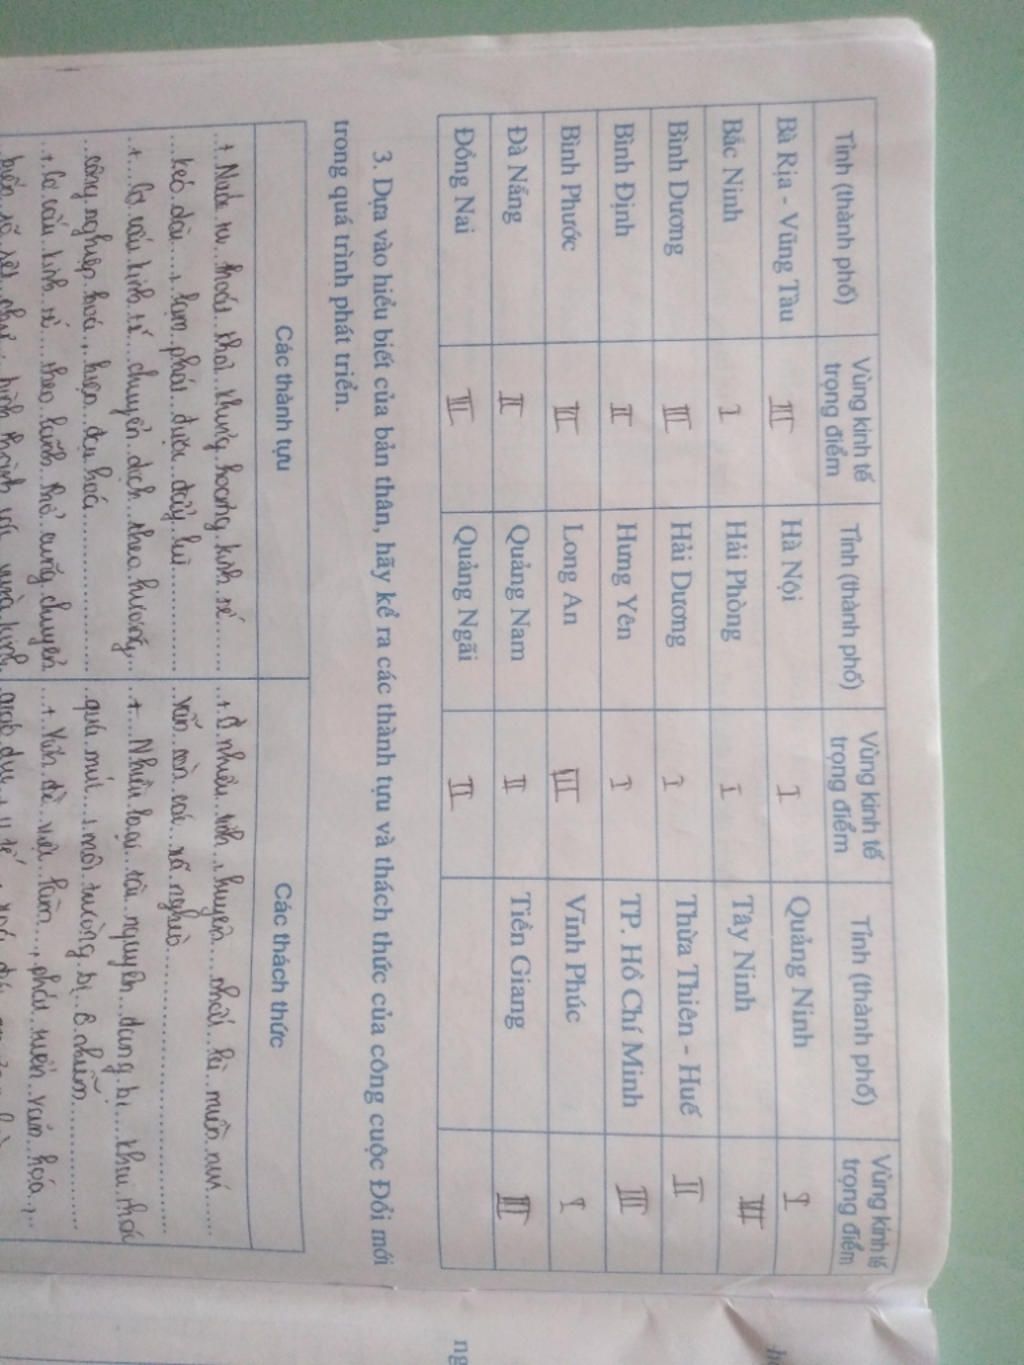 Tỉnh (thành phố) Vùng kinh tế trọng điểm Tỉnh (thành phố) Vùng kinh tế trọng điểm Tỉnh (thành phố) Vùng kinh tế trọng điểm
Bà Rịa - Vũng Tàu III Hà Nội I Quảng Ninh I
Bắc Ninh I Hải Phòng I Tây Ninh III
Bình Dương III Hải Dương I Thừa Thiên - Huế II
Bình Định II Hưng Yên I TP. Hồ Chí Minh III
Bình Phước III Long An III Vĩnh Phúc I
Đà Nẵng II Quảng Nam II Tiền Giang III
Đồng Nai III Quảng Ngãi II
3. Dựa vào hiểu biết của bản thân, hãy kể ra các thành tựu và thách thức của công cuộc Đổi mới
trong quá trình phát triển.
Các thành tựu
+ Nước ta thoát khỏi khủng hoảng kinh tế
kéo dài, lạm phát được đẩy lùi
+ Cơ cấu kinh tế chuyển dịch theo hướng
công nghiệp hoá, hiện đại hoá
+ Cơ cấu kinh tế theo lãnh thổ cũng chuyển
biến rõ rệt hình thành các vùng kinh
Các thách thức
+ Ở nhiều tỉnh, huyện miền núi
vẫn còn các xã nghèo
+ Nhiều loại tài nguyên đang bị khai thác
quá mức, môi trường bị ô nhiễm
+ Vấn đề việc làm, phát triển văn hóa,
giáo dục, y tế
ng